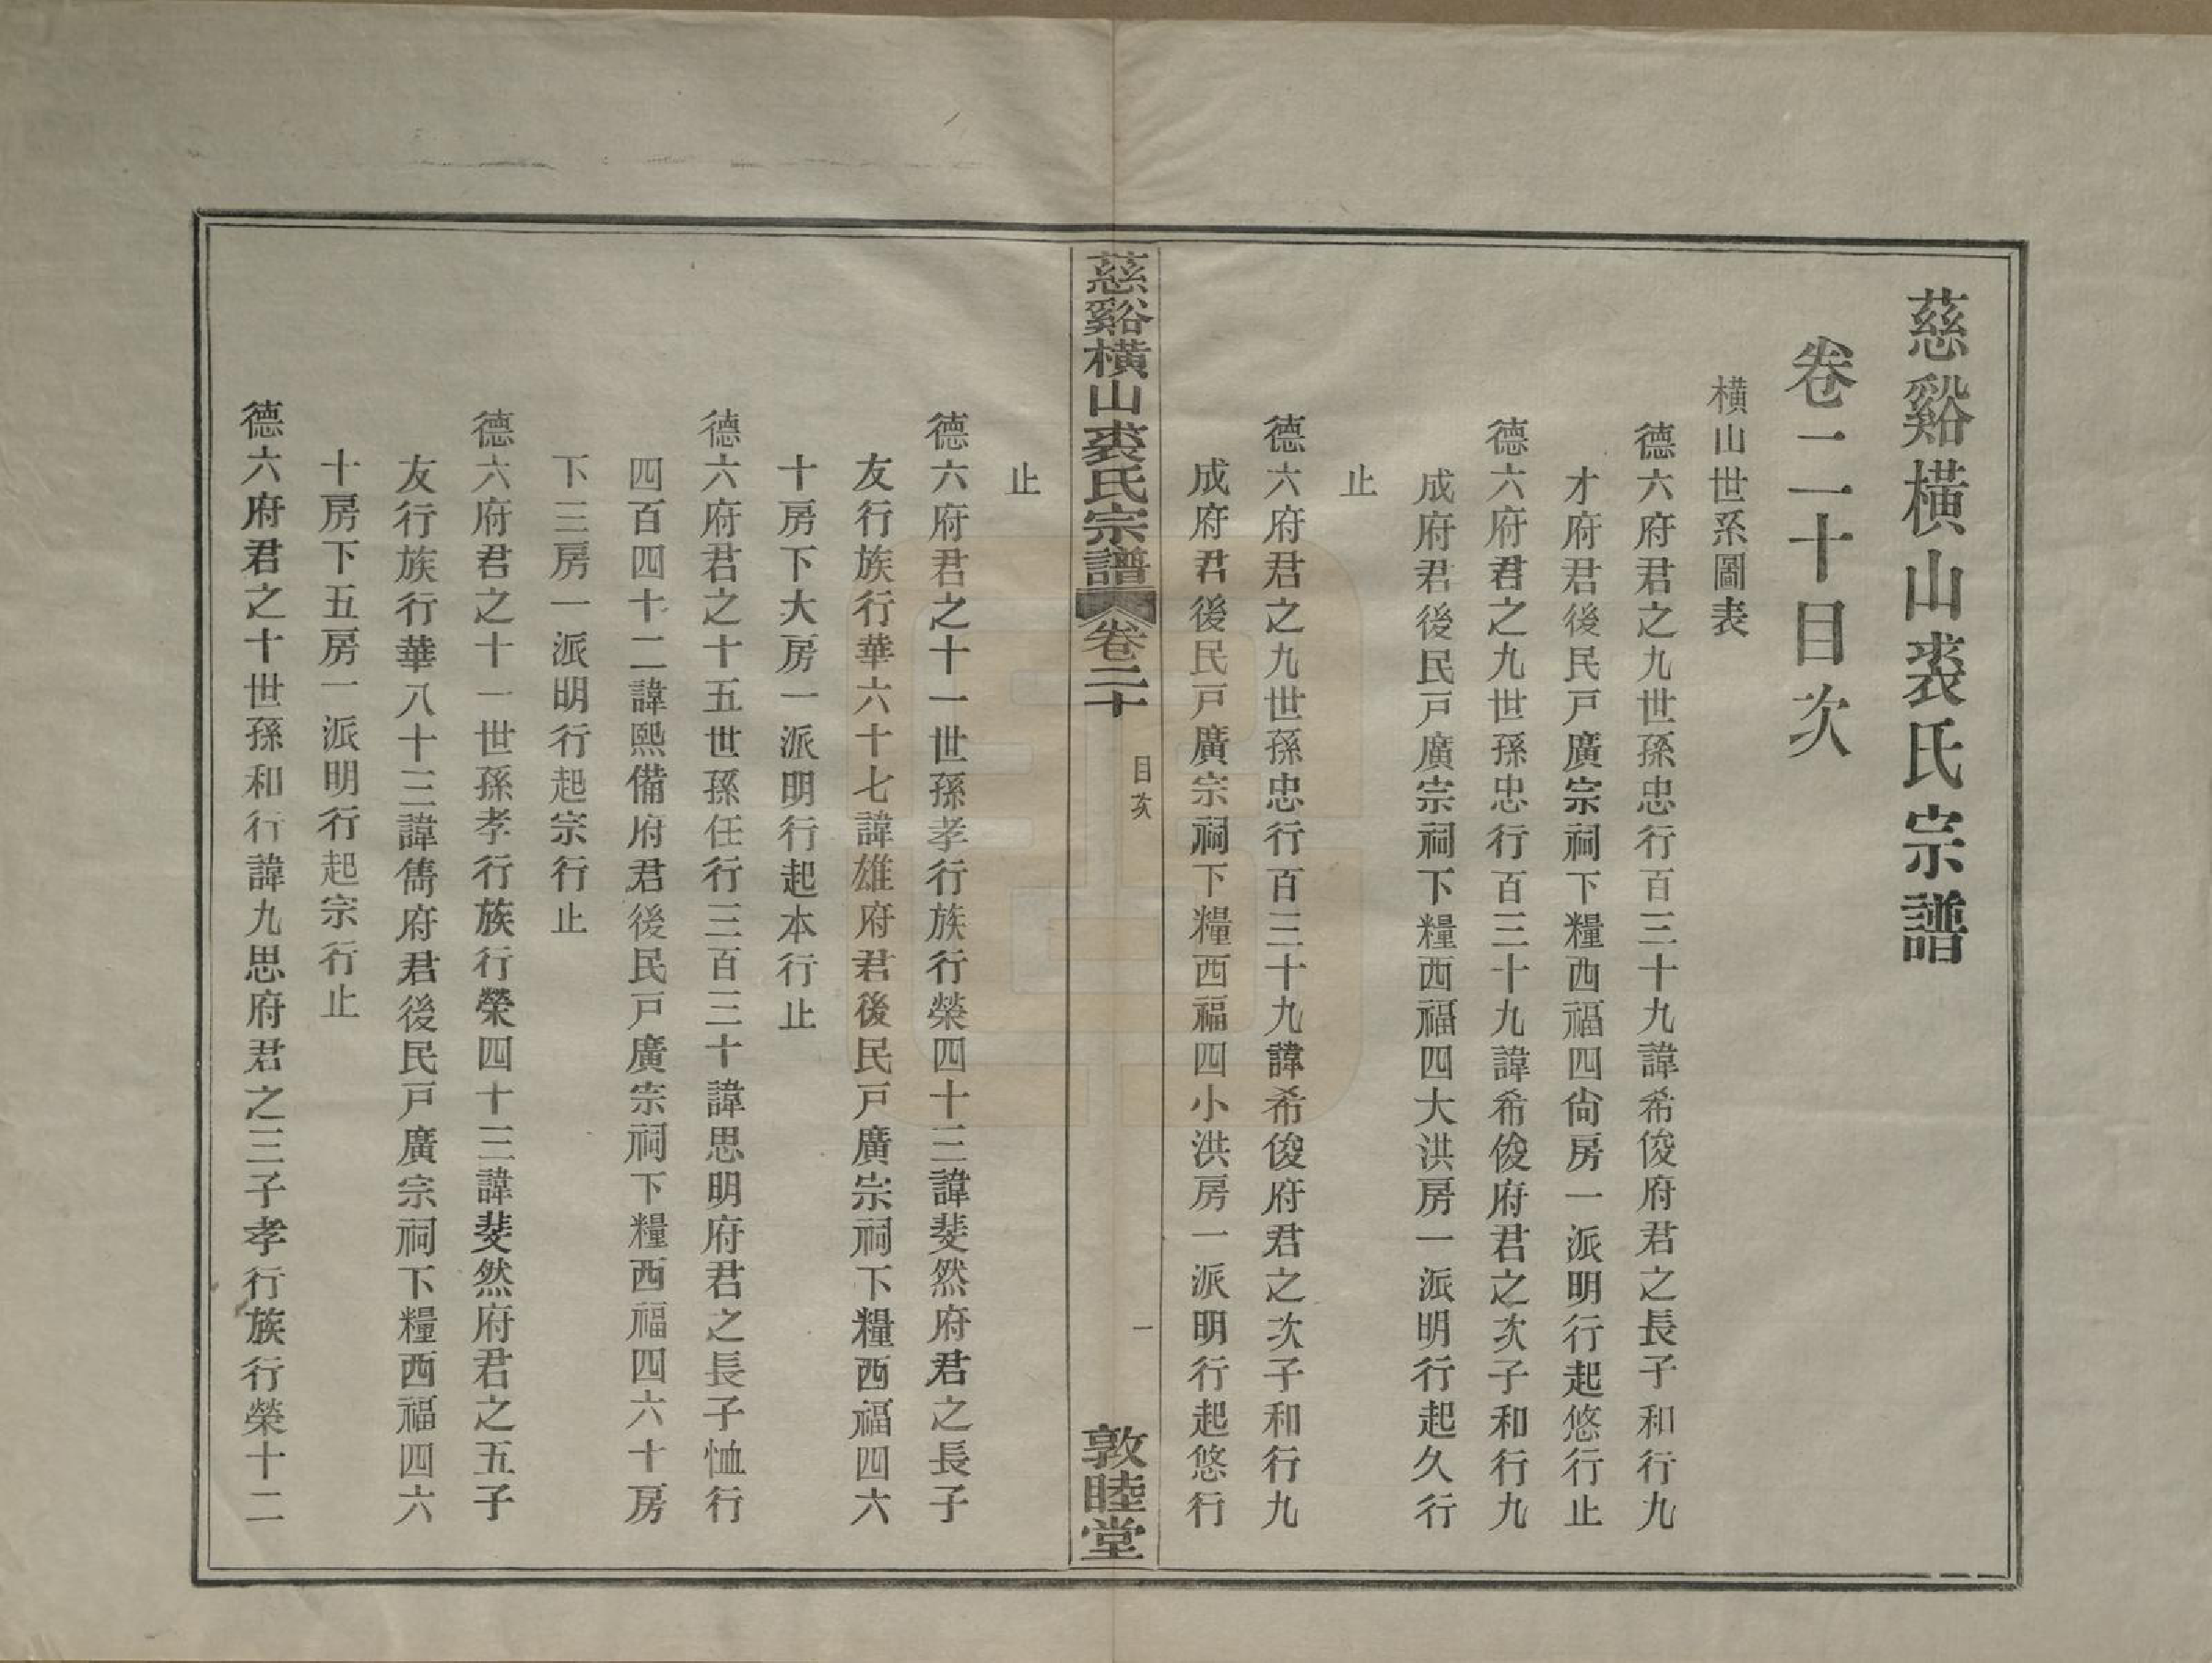 慈谿橫山裘氏宗譜
卷二十目次
橫山世系圖表
德六府君之九世孫忠行百三十九諱希俊府君之長子和行九
才府君後民戸廣宗祠下糧西福四尙房一派明行起悠行止
德六府君之九世孫忠行百三十九諱希俊府君之次子和行九
成府君後民戸廣宗祠下糧西福四大洪房一派明行起久行
止
德六府君之九世孫忠行百三十九諱希俊府君之次子和行九
成府君後民戸廣宗祠下糧西福四小洪房一派明行起悠行
慈谿橫山裘氏宗譜 卷二十 目次 一 敦睦堂
止
德六府君之十一世孫孝行族行榮四十三諱斐然府君之長子
友行族行華六十七諱雄府君後民戸廣宗祠下糧西福四六
十房下大房一派明行起本行止
德六府君之十五世孫任行三百三十諱思明府君之長子恤行
四百四十二諱熙備府君後民戸廣宗祠下糧西福四六十房
下三房一派明行起宗行止
德六府君之十一世孫孝行族行榮四十三諱斐然府君之五子
友行族行華八十三諱儁府君後民戸廣宗祠下糧西福四六
十房下五房一派明行起宗行止
德六府君之十世孫和行諱九思府君之三子孝行族行榮十二